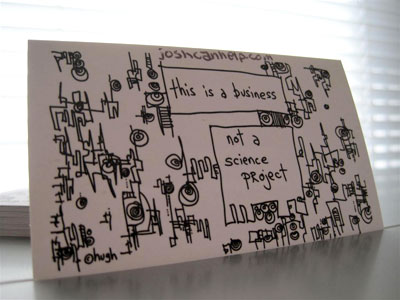 joshcanhelp.com
this is a business
not a
science
project
@hugh